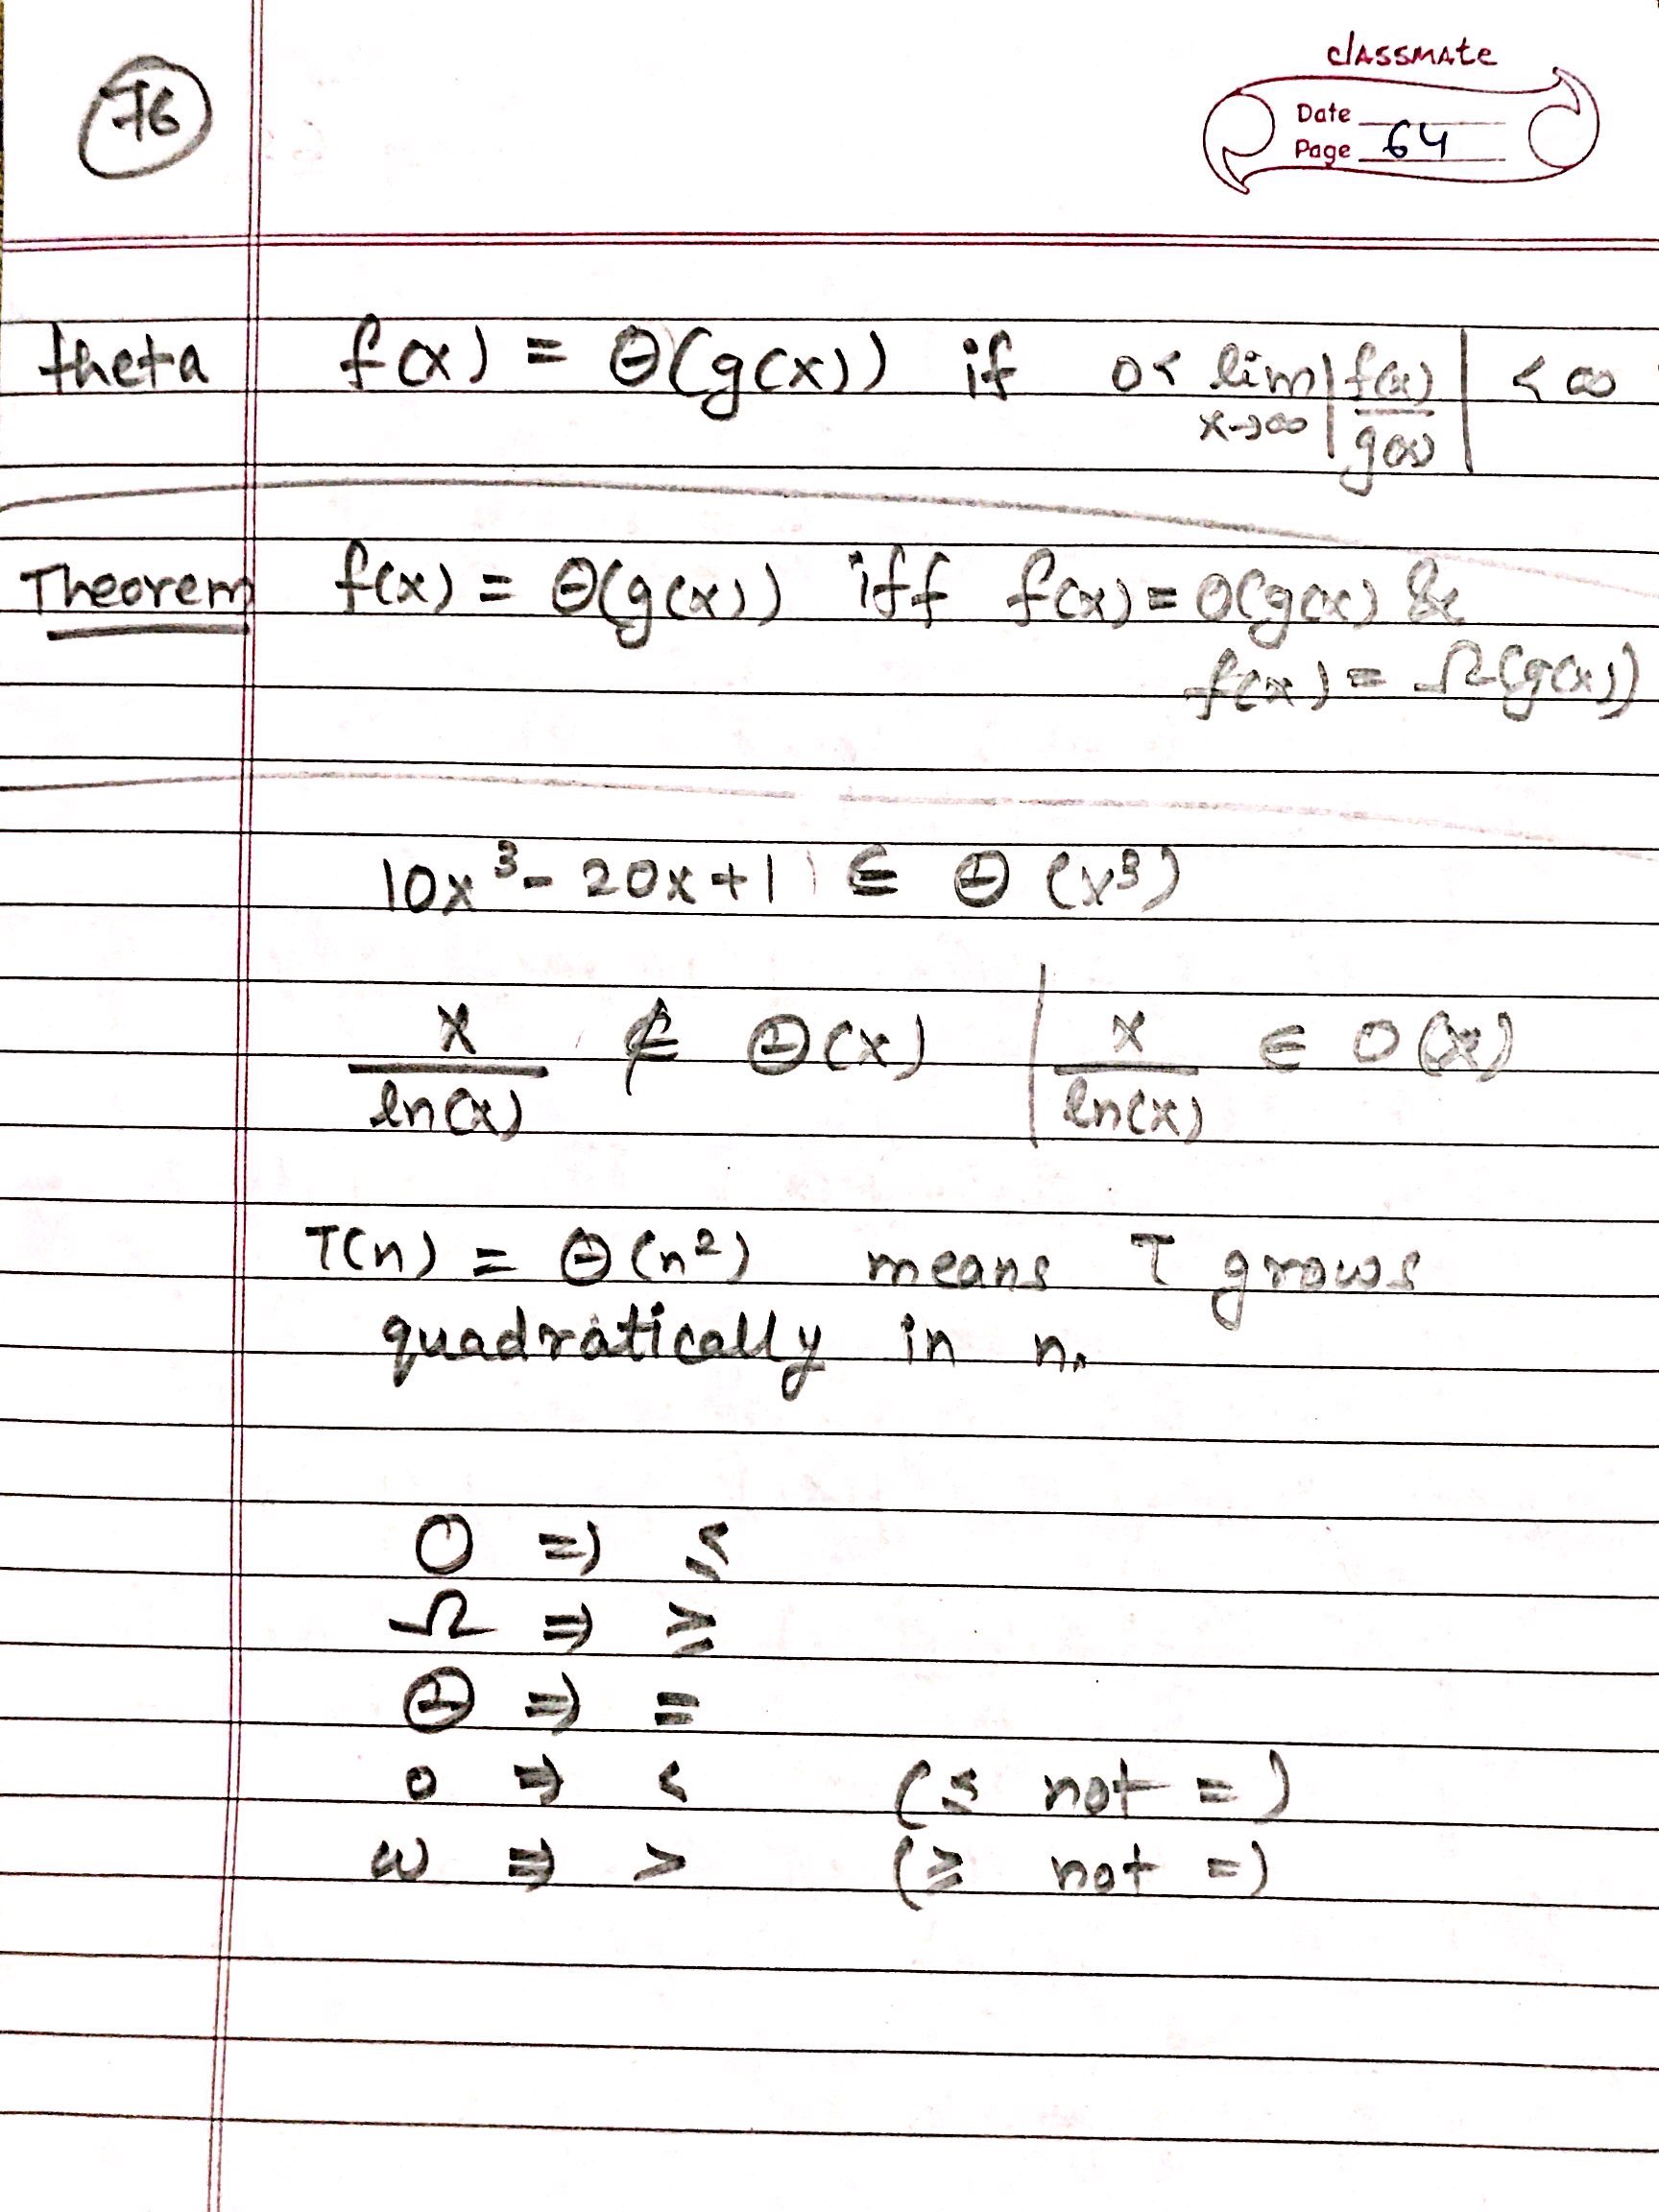 76
classmate
Date
Page 64
theta f(x) = Θ(g(x)) if 0 < lim x→∞ | f(x) / g(x) | < ∞
Theorem f(x) = Θ(g(x)) iff f(x) = O(g(x) &
f(x) = Ω(g(x))
10x³ - 20x + 1 ∈ Θ (x³)
x / ln(x) ∉ Θ(x) | x / ln(x) ∈ O(x)
T(n) = Θ(n²) means T grows
quadratically in n.
O ⇒ ≤
Ω ⇒ ≥
Θ ⇒ =
o ⇒ < (≤ not =)
ω ⇒ > (≥ not =)